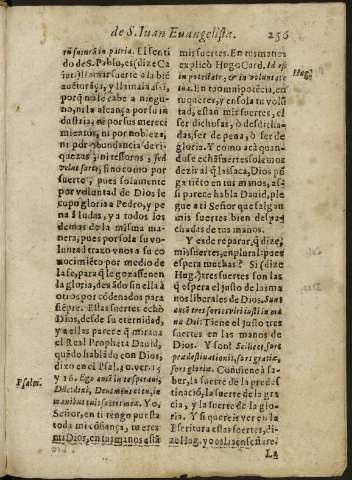 de S. Iuan Euangelista.
256
do de S. Pablo, es (dize Ca
llamar suerte a la bie
auẽturãça, y llamala assi,
porq̃ no le cabe a ningu-
no, ni la alcança por su in
dustria, ni por sus mereci
mientos, ni por nobleza,
ni por abundancia de ri-
quezas, ni tessoros, sed
volut sortis, sino como por
suerte, pues solamente
por voluntad de Dios le
cupo gloria a Pedro, y pe
na a Iudas, y a todos los
demas de la misma ma-
nera, pues por sola su vo-
luntad traxo vnos a su co
nocimiẽto por medio de
la fe, para q̃ le gozassen en
la gloria, dexãdo sin ella à
otros por cõdenados para
siẽpre. Estas suertes echò
Dios, desde su eternidad,
y a ellas parece q̃ miraua
el Real Propheta Dauid,
quãdo hablãdo con Dios,
dixo en el Psal. 30. ver. 15
y 16. Ego autẽ in te speraui,
Dñe: dixi, Deus meus es tu, in
manibus tuis sortes meæ. Yo,
Señor, en ti tengo puesta
toda mi cõfiança, tu eres
mi Dios, en tus manos estã
Psalm.
mis suertes. En tus manos
explicò Hugo Card. Id est
in potestate, & in voluntate
tua. En tu omnipotẽcia, en
tu querer, y en sola tu volũ
tad, estàn mis suertes, el
ser dichosas, ò desdicha-
das, ser de pena, ò ser de
gloria. Y como acà quan-
do se echã suertes solemos
dezir al q̃ las saca, Dios põ
ga tiẽto en tus manos, assi
parece habla Dauid, ple
gue a ti Señor que salgan
mis suertes bien despa-
chadas de tus manos.
Y es de reparar, q̃ dize,
mis suertes, en plural: pues
espera muchas? Si (dize
Hug.) tres suertes son las
q̃ espera el justo de las ma
nos liberales de Dios. Sunt
autẽ tres sortes viri iusti in ma
nu Dei: Tiene el justo tres
suertes en las manos de
Dios. Y son? Scilicet, sors
prædestinationis, sors gratiæ,
sors gloriæ. Conuiene à sa-
ber, la suerte de la predes
tinaciõ, la suerte de la gra
cia, y la suerte de la glo-
ria. Y si quereis ver en la
Escritura estas suertes, di-
ze Hug. yo os las enseñarè.
Hug.
La